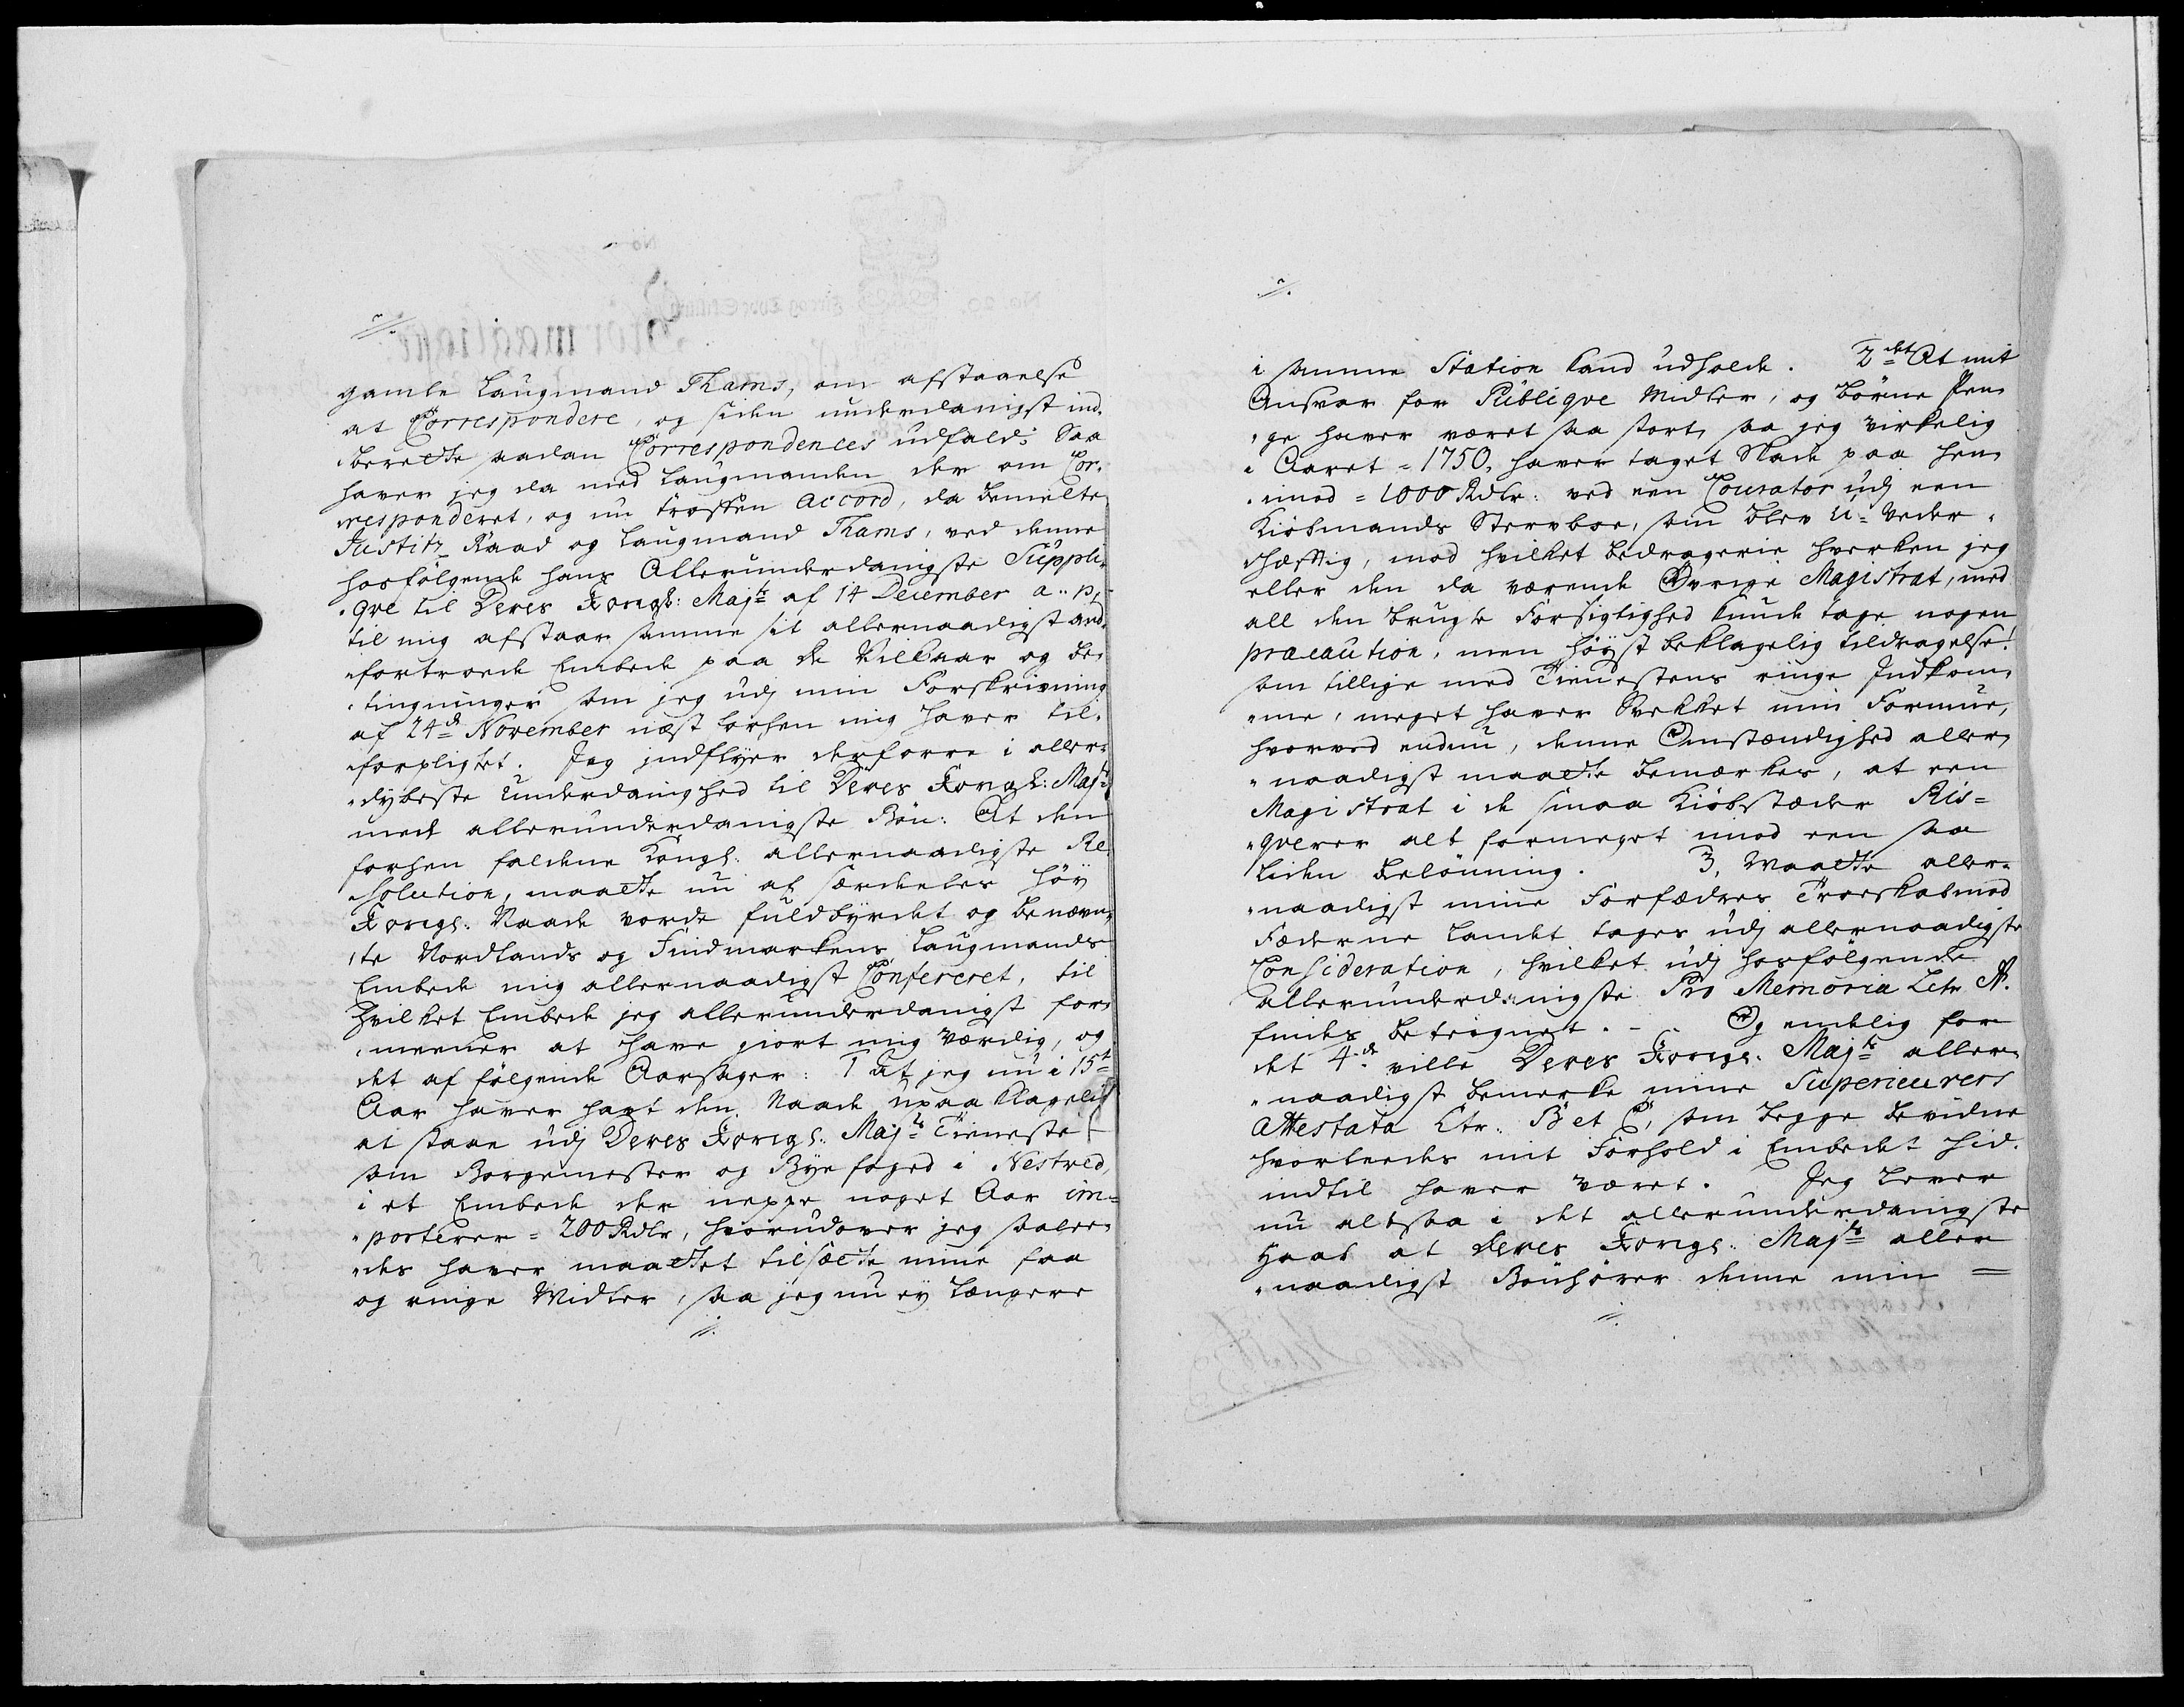 gamle Laugmand Thams, om afstaaelse
at Correspondere, og siden underdanigst ind-
berette saadan Correspondences udfald; Saa
haver jeg da med Laugmanden der om Cor-
responderet, og nu truffen accord, da bemelte
Justitz Raad og Laugmand Thams, ved denne
hosfölgende hans Allerunderdanigste Suppli-
qve til Deres Kongl: Majts af 14 December a: p:
til mig afstaar samme sit allernaadigst an-
fortroede Embede paa de Vilkaar og be-
tingninger som jeg udj min Forskrivning
af 24d November næst forhen mig haver til-
forpligtet. Jeg indflyer derforre i aller-
dybeste Underdanighed til Deres Kongl: Majts
med allerunderdanigste Bön: At den
forhen faldene Kongl: allernaadigste Re-
solution, maatte nu af særdeles höy
Kongl: Naade vorde fuldbyrdet og benævn-
te Nordlands og Findmarkens Laugmands
Embede mig allernaadigst Confereret, til
hvilket Embede jeg allerunderdanigst for-
meener at have giort mig værdig, og
det af fölgende Aarsager: 1 at jeg nu i 15de
Aar haver havt den Naade upaaklagelig
at staae udj Deres Kongl: Majts Tieneste
som Borgemester og Byefoged i Nestved,
i et Embede der neppe noget Aar im-
porterer = 200 Rdlr, hvorudover jeg saale-
des haver maattet tilsætte mine faa
og ringe Midler, saa jeg nu ey længere
i samme Station kand udholde. 2det At mit
Ansvar for Publiqve Midler, og Börne Pen-
ge haver været saa stort, saa jeg virkelig
i Aaret = 1750, haver taget Skade paa hen-
imod = 1000 Rdlr: ved een Courator udj een
Kiöbmands Sterboe, som blev U-veder-
hæftig, mod hvilket bedragerie hverken jeg
eller den da værende Övrige Magistrat, med
all den brugte Forsigtighed kunde tage nogen
præcaution, men höyst beklagelig tildragelse!
som tillige med Tienestens ringe Indkom-
me, meget haver Svekket min Formue,
hvorved endnu, denne Omstændighed aller-
naadigst maatte bemærkes, at een
Magistrat i de smaa Kiöbstæder Ris-
qverer alt formeget imod een saa
liden belönning. 3, Maatte aller-
naadigst mine Forfædres Troeskab mod
Fæderne Landet tages udj allernaadigste
Consideration, hvilket udj hosfölgende
allerunderdanigste Pro Memoria Letr A.
findes betegnet. - Og endelig for
det 4de ville Deres Kongl: Majts aller-
naadigst bemerke mine Superieurers
Attestata Ltr: B et C, som begge bevidne
hvorleedes mit Forhold i Embedet hid-
indtil haver været. Jeg lever
nu altsaa i det allerunderdanigste
Haab at Deres Kongl: Majts aller
naadigst Bönhörer denne min =